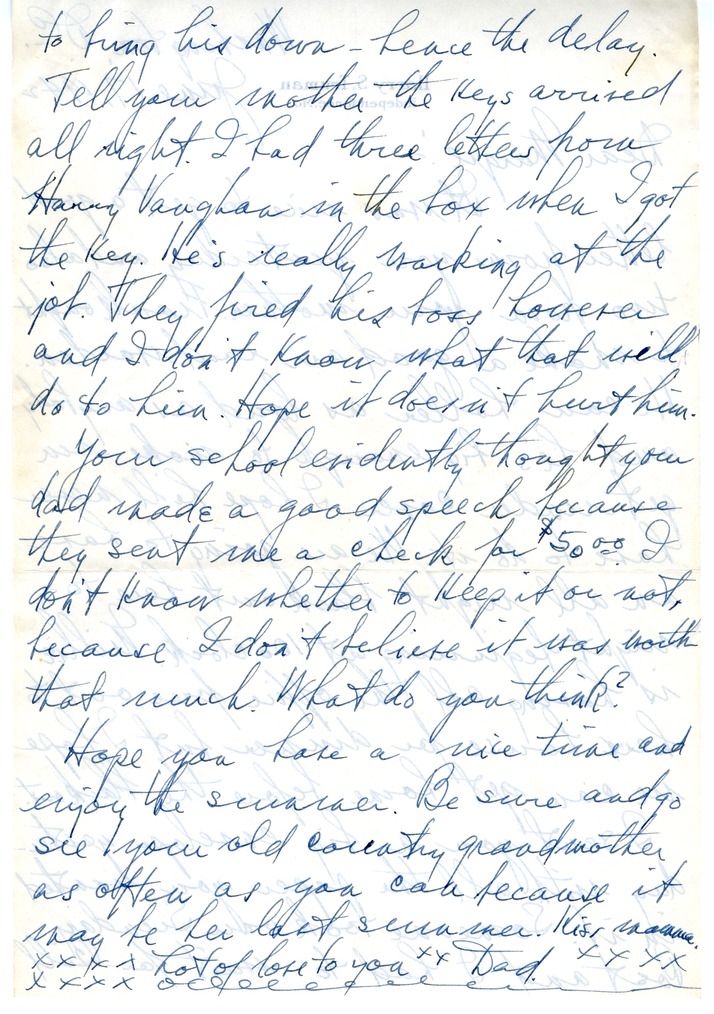 to bring his down - hence the delay.
Tell your mother the keys arrived
all right. I had three letters from
Harry Vaughan in the box when I got
the key. He's really working at the
job. They fired his boss however
and I don't know what that will
do to him. Hope it doesn't hurt him.
Your school evidently thought your
dad made a good speech because
they sent me a check for $50.00. I
don't know whether to keep it or not,
because I don't believe it was worth
that much. What do you think?
Hope you have a nice time and
enjoy the summer. Be sure and go
see your old country grandmother
as often as you can because it
may be her last summer. Kiss mamma.
XXXX Lot of love to you XX Dad. XX XX
XXXX